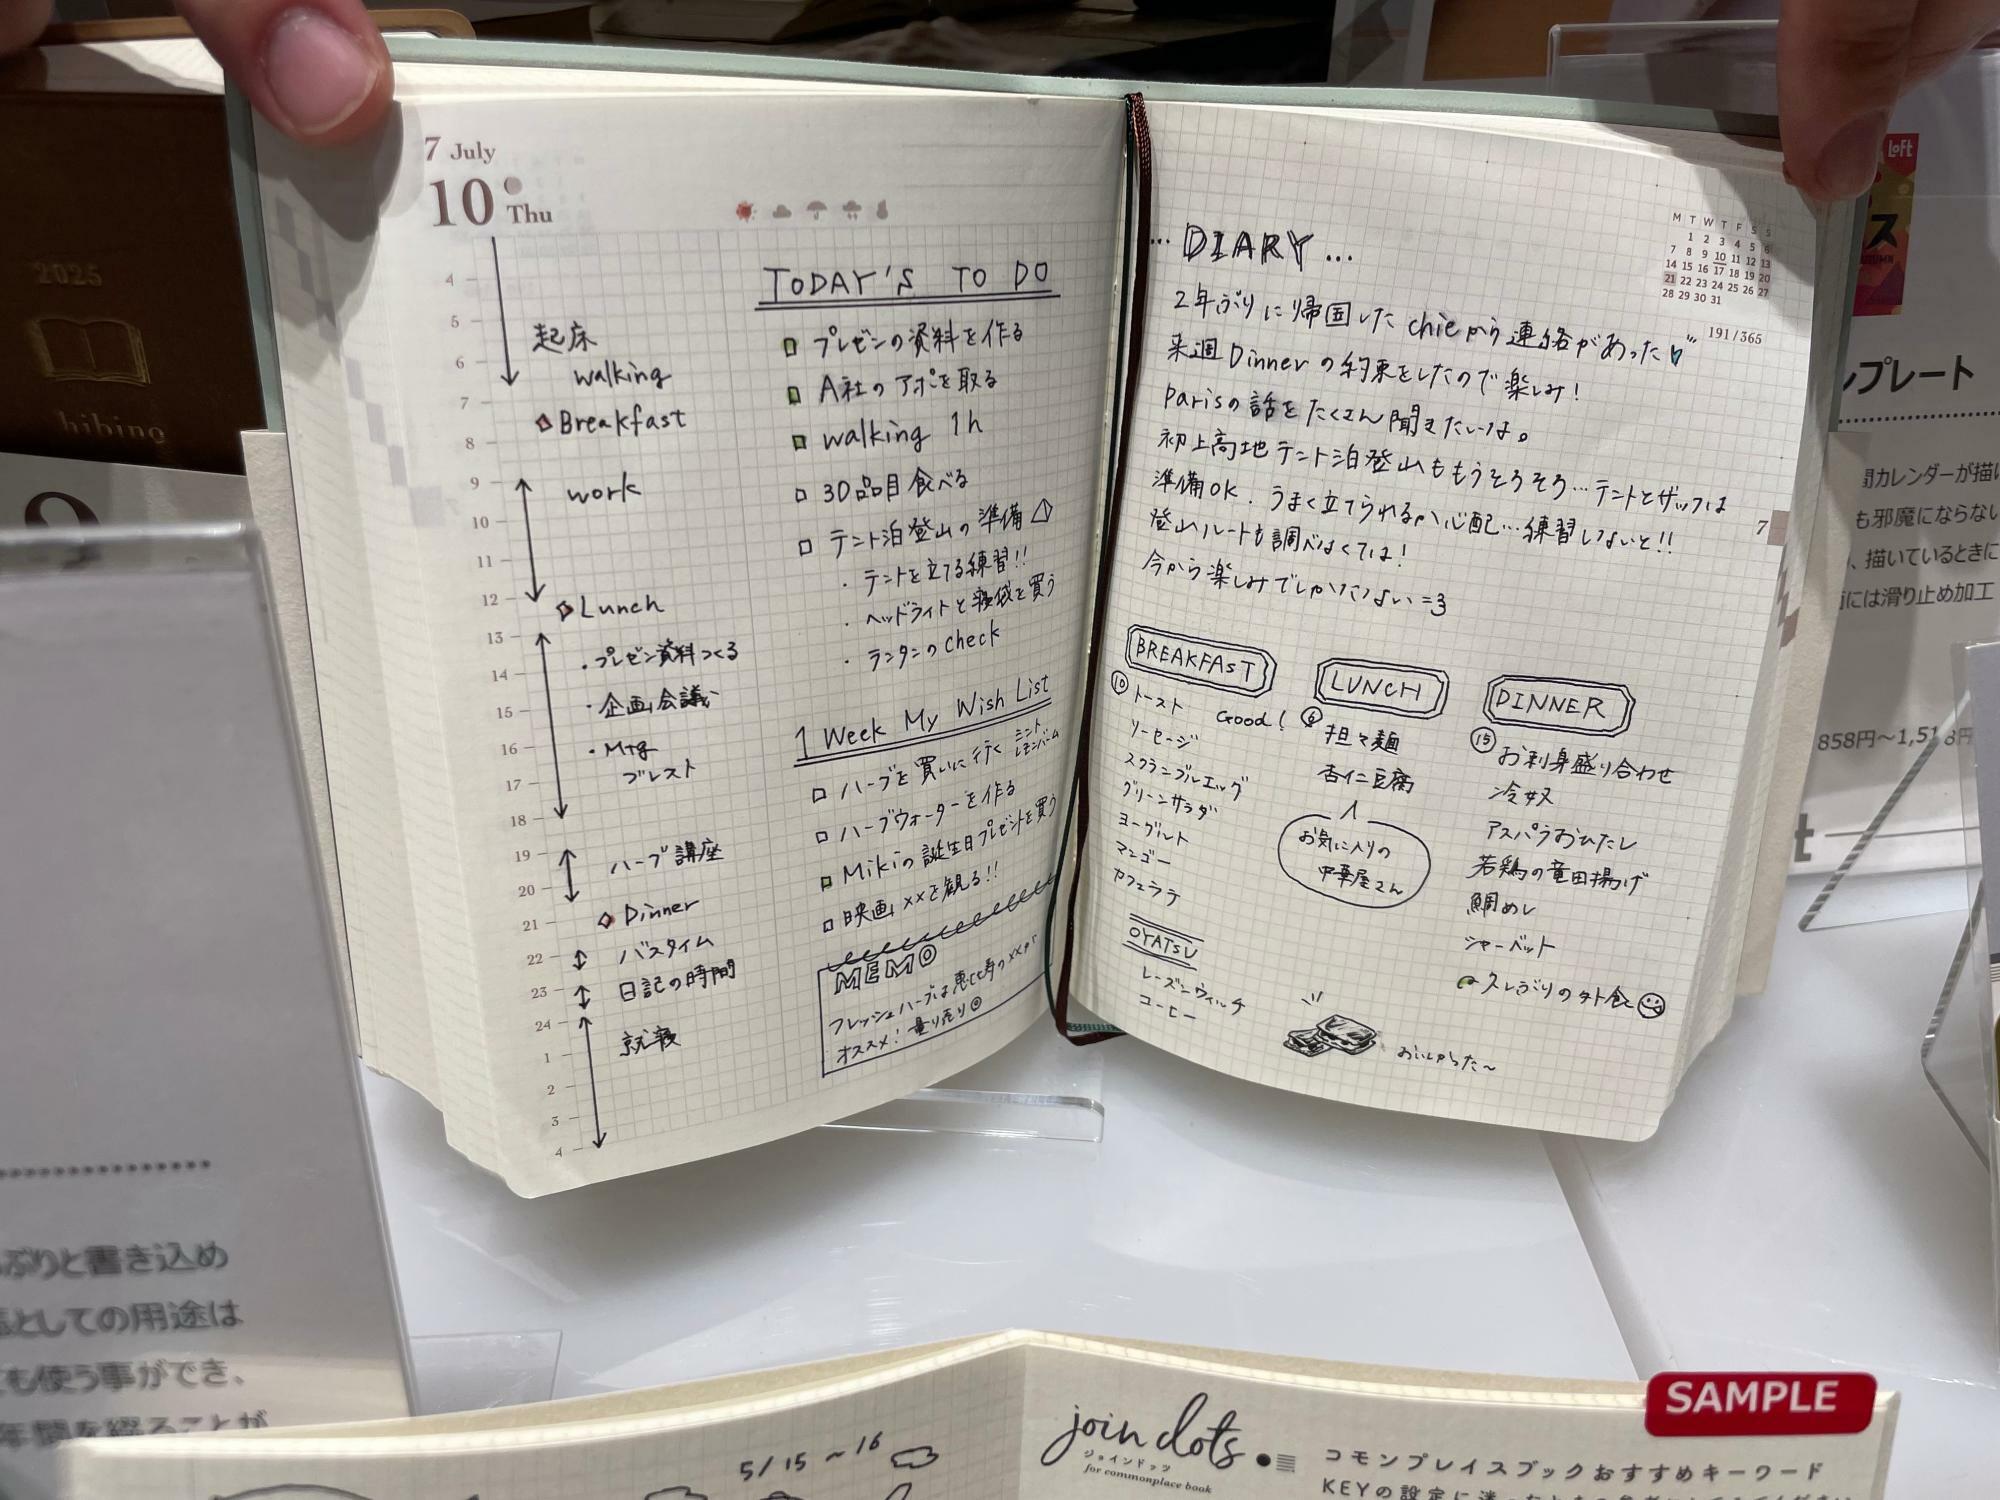 7 July
10 Thu
4
5
起床
6
walking
7
Breakfast
8
9
work
10
11
12
Lunch
13
・プレゼン資料つくる
14
・企画会議
15
・Mtg
16
ブレスト
17
18
19
ハーブ講座
20
Dinner
21
バスタイム
22
日記の時間
23
24
就寝
1
2
3
4
TODAY'S TO DO
プレゼンの資料を作る
A社のアポを取る
walking 1h
30品目食べる
テント泊登山の準備
・テントを立てる練習!!
・ヘッドライトと寝袋を買う
・ランタンのcheck
1 Week My Wish List
ハーブを買いに行く ミント レモンバーム
ハーブウォーターを作る
Mikiの誕生日プレゼントを買う
映画××を観る!!
MEMO
フレッシュハーブは恵比寿の××が
オススメ! 量り売り◎
M T W T F S S
1 2 3 4 5 6
7 8 9 10 11 12 13
14 15 16 17 18 19 20
21 22 23 24 25 26 27
28 29 30 31
191/365
7
…DIARY…
2年ぶりに帰国したchieから連絡があった
来週Dinnerの約束をしたので楽しみ!
Parisの話をたくさん聞きたいな。
初上高地テント泊登山ももうそろそろ…テントとザックは
準備OK. うまく立てられるか心配…練習しないと!!
登山ルートも調べなくては!
今から楽しみでしかたない=3
BREAKFAST
⑩トースト
Good!
ソーセージ
スクランブルエッグ
グリーンサラダ
ヨーグルト
マンゴー
カフェラテ
OYATSU
レーズンウィッチ
コーヒー
LUNCH
担々麺
杏仁豆腐
お気に入りの
中華屋さん
DINNER
⑮お刺身盛り合わせ
冷奴
アスパラおひたし
若鶏の竜田揚げ
鯛めし
シャーベット
久しぶりの外食
おいしかった〜
2025
hibino
Loft
ス
プレート
間カレンダーが描
も邪魔にならない
、描いているときに
には滑り止め加工
858円〜1,51
ぶりと書き込め
としての用途は
も使う事ができ、
年間を綴ることが
5/15〜16
join dots
ジョインドッツ
for commonplace book
SAMPLE
コモンプレイスブックおすすめキーワード
KEYの設定に迷ったとき